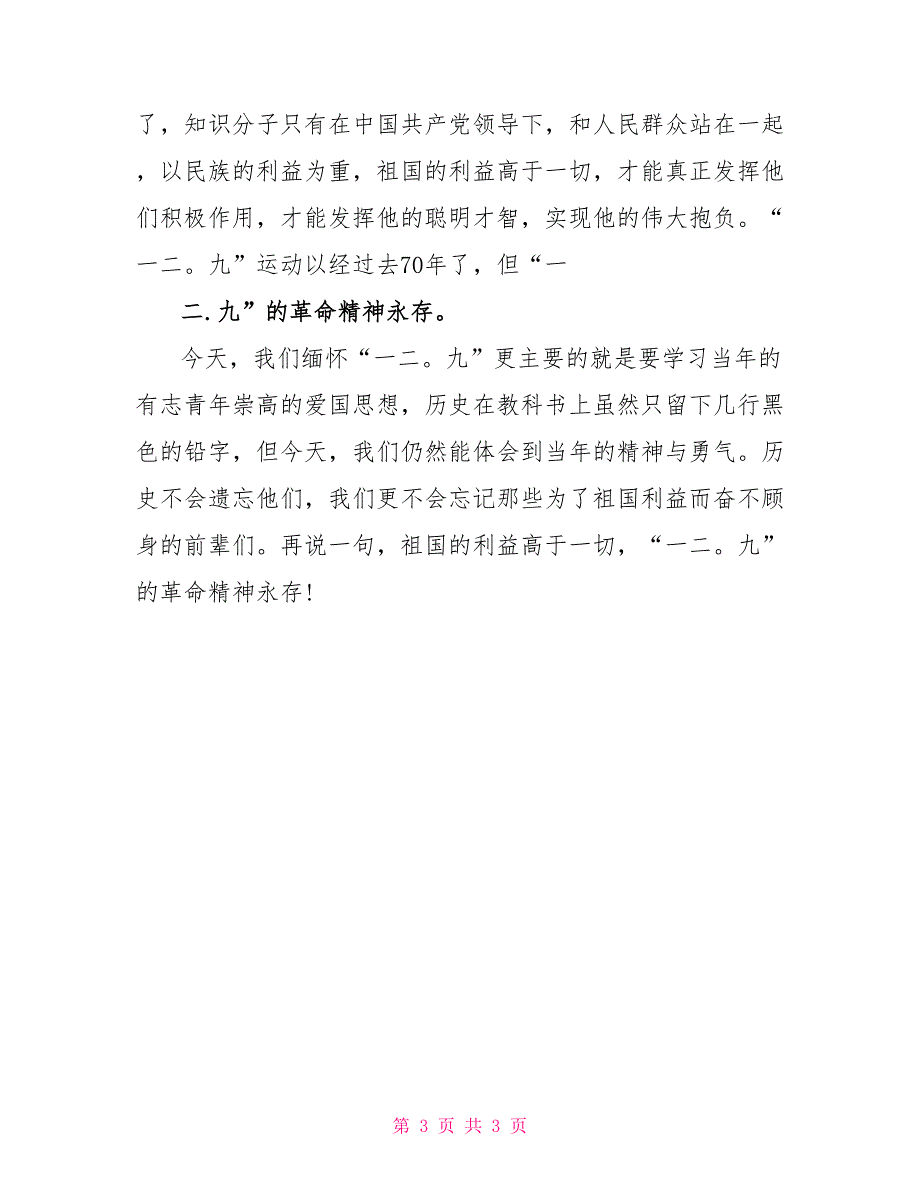 了，知识分子只有在中国共产党领导下，和人民群众站在一起
，以民族的利益为重，祖国的利益高于一切，才能真正发挥他
们积极作用，才能发挥他的聪明才智，实现他的伟大抱负。“
一二。九”运动以经过去70年了，但“一
二.九”的革命精神永存。
今天，我们缅怀“一二。九”更主要的就是要学习当年的
有志青年崇高的爱国思想，历史在教科书上虽然只留下几行黑
色的铅字，但今天，我们仍然能体会到当年的精神与勇气。历
史不会遗忘他们，我们更不会忘记那些为了祖国利益而奋不顾
身的前辈们。再说一句，祖国的利益高于一切，“一二。九”
的革命精神永存!
第 3 页 共 3 页